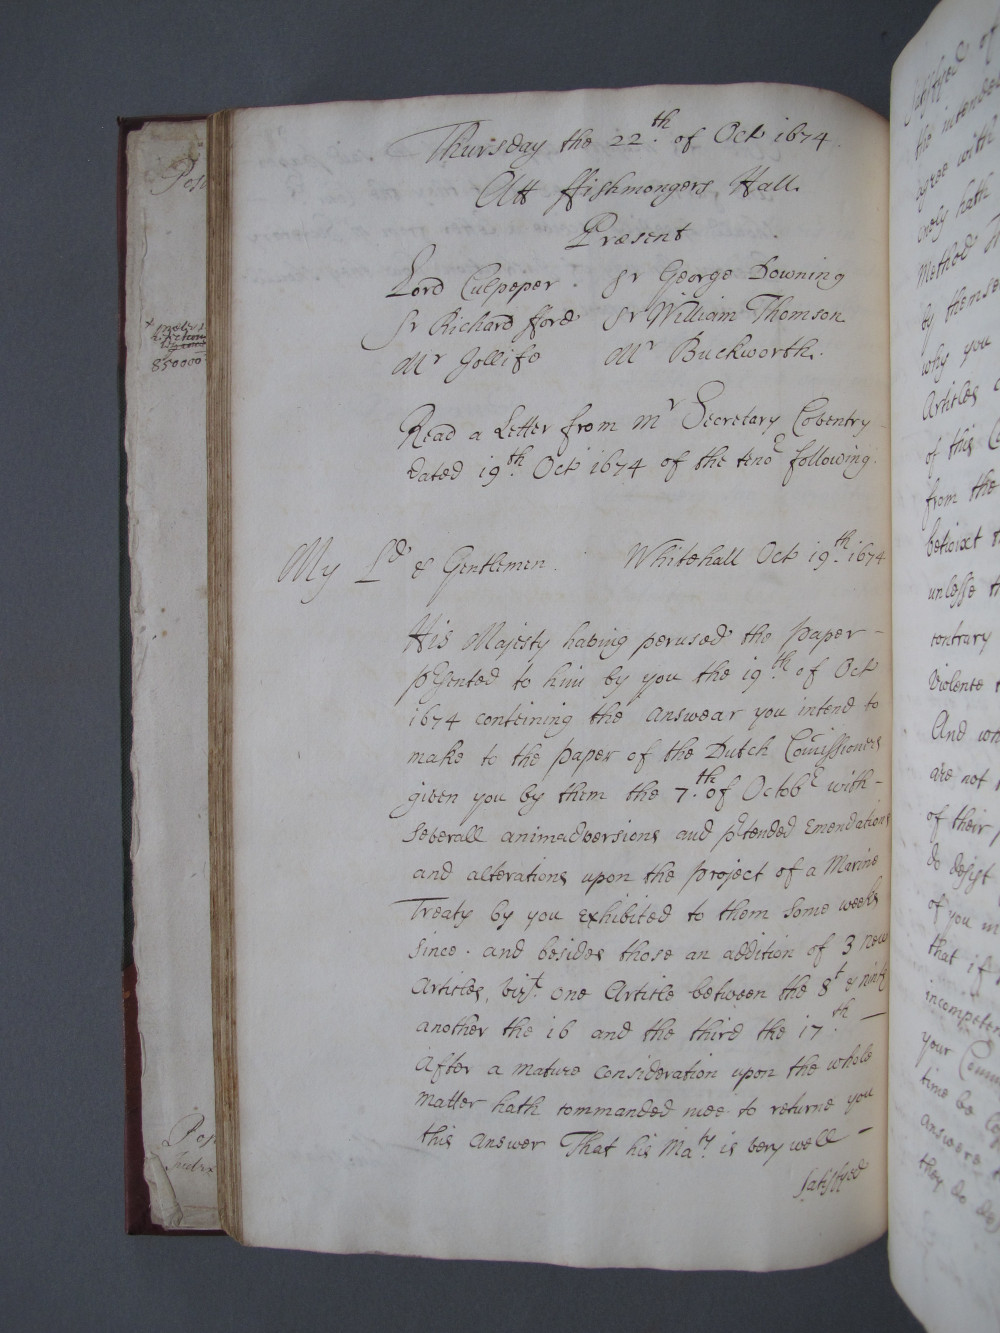 Thursday the 22.th of Oct 1674.
Att ffishmongers Hall.
Præsent
Lord Culpeper. Sr George Downing
Sr Richard fford Sr William Thomson
Mr Jollife Mr Buckworth.
Read a Letter from Mr Secretary Coventry
dated 19.th Oct 1674 of the teno.r following.
My Ld & Gentlemen. Whitehall Oct 19.th 1674
His Majesty having perused the paper -
prsented to him by you the 19.th of Oct
1674 conteining the answear you intend to
make to the paper of the Dutch Comissioners
given you by them the 7.th of Octobr with -
severall animadversions and prtended Emendations
and alterations upon the project of a Marine
Treaty by you exhibited to them some weeks
since. and besides those an addition of 3 new
Articles, vizt. one Article between the 8t & ninth
another the 16 and the third the 17.th -
After a mature consideration upon the whole
matter hath commanded mee to returne you
this answer That his Maty. is very well -
satisfyed
850000
satisfyed of
the intended
agree with
hath
method
by themse
why you
Articles
of this
from the
betwixt
unlesse
contrary
violence
And
are not
of their
do desist
of you
that if
incompeten
your
time be
answere
they do